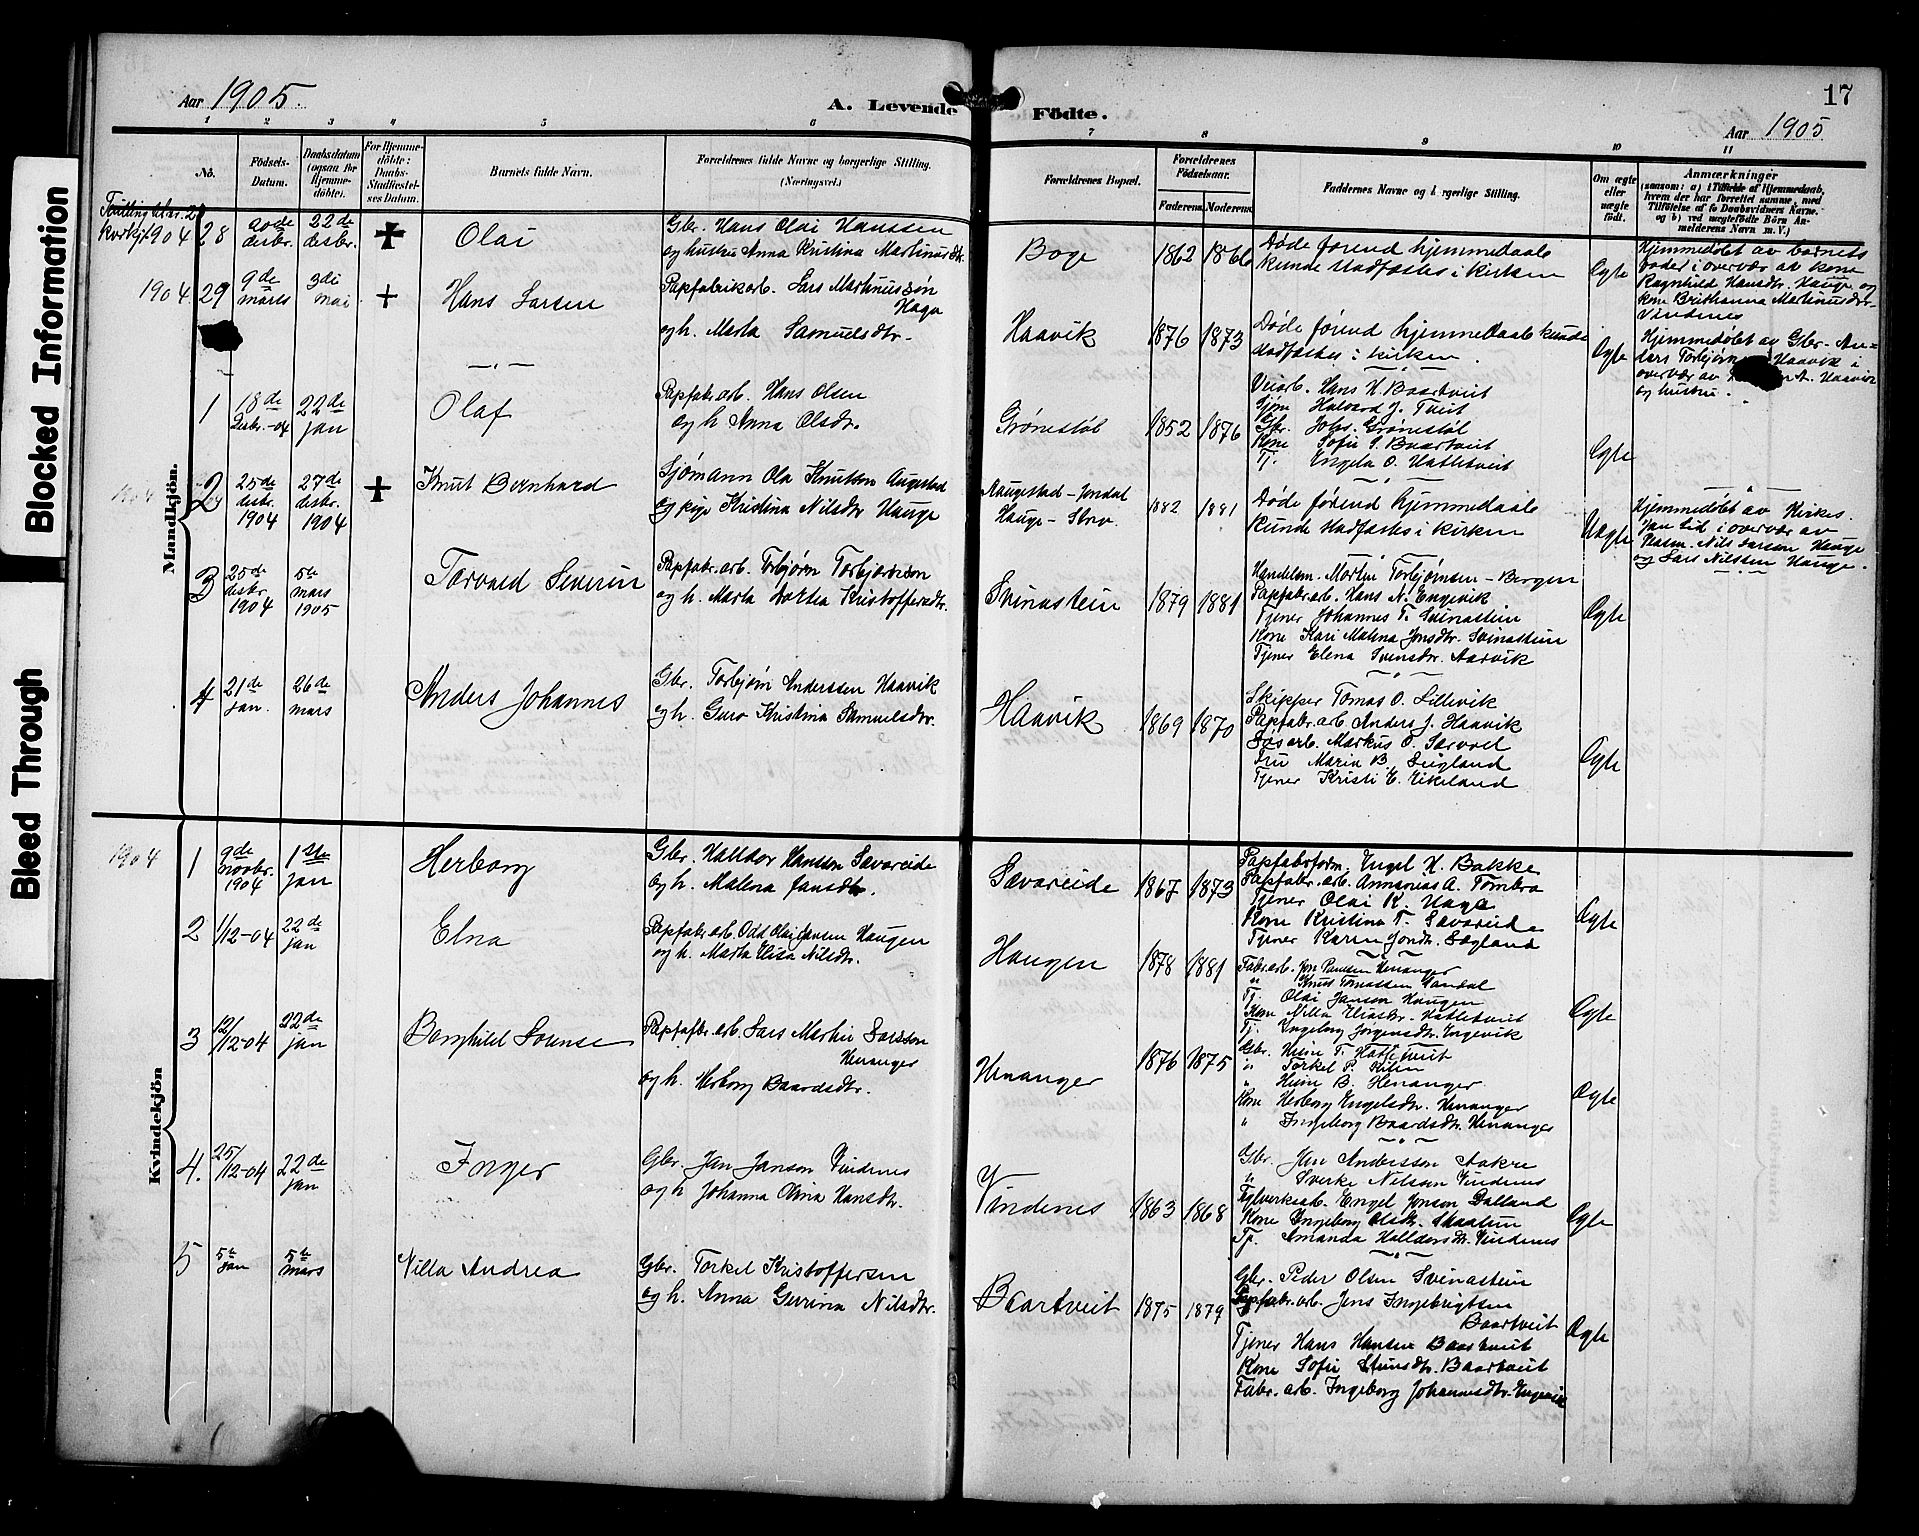 Blocked Information
Bleed Through
Aar 1905.
A. Levende Födte.
17
Aar 1905
1 2 3 4 5 6 7 8 9 10 11
No.
Födsels-
Datum.
Daabsdatum
(ogsaa for
Hjemme-
döbte).
For Hjemme-
döbte:
Daabs-
Stadfæstel-
ses Datum.
Barnets fulde Navn.
Forældrenes fulde Navne og borgerlige Stilling.
(Næringsvei.)
Forældrenes Bopæl.
Forældrenes
Födselsaar.
Faderens. Moderens.
Faddernes Navne og borgerlige Stilling.
Om ægte
eller
uægte
født.
Anmærkninger
(saasom: a) i Tilfælde af Hjemmedaab,
hvem der har forrettet samme, med
Tilföielse af to Daabsvidners Navne,
og b) ved uægtefödte Börn An-
melderens Navn m. V.)
Mandkjön.
1904 28
20de
desbr.
22de
desbr.
Olai
Gbr. Hans Olai Hanssen
og hustru Anna Kristina Martinusdtr.
Boge
1862 1866
Døde førend hjemmedaab
kunde stadfæstes i kirken
Ægte
Hjemmedøbt av barnets
fader i overvær av kone
Ragnhild Hansdtr. Hauge og
kone Brithanna Martinusdtr.
Vindenes
1904 29
9de
marts
3di
mai
Hans Larsen
Papfabrikarb. Lars Martinussøn
Haga
og h. Marta Samuelsdtr.
Haavik
1876 1873
Døde førend hjemmedaab kunde
stadfæstes i kirken.
Ægte
Hjemmedøbt av Gbr. An-
ders Torbjørn Haavik i
overvær av A. Haavik
og hustru.
1
18de
Desbr.-04
22de
jan
Olaf
Papfabr.arb. Hans Olsen
og h Anna Olsdtr.
Grønestøl
1852 1876
Veiarb. Hans H. Baartveit
Halvard J. Tveit
Gbr. Johs. Grønestøl
Kone Sofie S. Baartveit
Tj. Engela O. Hatletveit
Ægte
1904 2
25de
desbr.
1904
27de
desbr.
1904
Knut Bernhard
Sjømann Ola Knutsen Augestad
og pige Kristina Nilsdtr Hauge
Augestad - Jondal
Hauge - Strv.
1882 1881
Døde førend hjemmedaab
kunde stadfæstes i kirken
Uægte
Hjemmedøbt av Kirkes.
Jan Eid i overvær av
Nils Larsen Hauge
og Lars Nilssen Hauge.
3
25de
desbr.
1904
5te
mars
1905
Torvald Severin
Papfabr.arb. Torbjørn Torbjørnson
og h. Marta Dortea Kristoffersdtr.
Svinastein
1879 1881
Handelsm. Morten Torbjørnsen - Bergen
Papfabr.arb. Hans N. Engevik
Tjener Johannes T. Svinastein
Kone Kari Malena Jonsdtr. Svinastein
Tjener Elena Svensdtr. Aarvik
Ægte
4
21de
jan.
26de
mars
Anders Johannes
Gbr. Torbjørn Anderssen Haavik
og h. Guro Kristina Samuelsdtr.
Haavik
1869 1870
Skipper Tomas O. Lillevik
Papfabr.arb. Anders J. Haavik
Markus O. Sørvoll
Fru Maria B.
Tjener Kristi E. Eikeland
Ægte
Kvindekjön
1904 1
9de
novbr.
1904
1ste
jan
Herborg
Gbr. Halldor Hansson Sævareide
og h. Malena Jansdtr.
Sævareide
1867 1873
Papfabrform. Engel H. Bakke
Papfabr.arb. Annanias A. Tombra
Tjener Olai K. Haga
Kone Kristina T. Sævareide
Tjener Karen Jondtr. Døgland
Ægte
2
1/12-04
22de
jan
Elna
Papfabr.arb. Odd Olai Jansen Haugen
og h. Marta Elisa Nilsdtr.
Haugen
1878 1881
Fabr.arb. Jon Paulsen Henanger
" Knut Tomassen Vandal
Tj. Olai Jansson Haugen
Kone Nilla Eliasdtr. Hatletveit
Tj. Ingeborg Jørgensdtr. Engevik
Ægte
3
12/12-04
22de
jan
Borghild Lovise
Papfabr.arb. Lars Martin Larsson
Henanger
og h. Herborg Baardsdtr.
Henanger
1876 1875
Gbr. Heine T. Hatletveit
" Torkel P. Kilen
" Heine B. Henanger
Kone Herborg Engelsdtr. Henanger
" Ingeborg Baardsdtr. Henanger
Ægte
4.
25/12-04
22de
jan
Inger
Gbr. Jan Janson Vindenes
og h. Johanna Olina Hansdtr.
Vindenes
1863 1868
Gbr. Jon Andersson Aakre
" Sverke Nilsson Vindenes
Teglverksarb. Engel Jonson Dalland
Kone Ingeborg Olsdtr. Skaatun
Tj. Amanda Halldorsdtr. Vindenes
Ægte
5
5te
jan
5te
mars
Nilla Andrea
Gbr. Torkel Kristoffersen
og h. Anna Gurina Nilsdtr.
Baartveit
1875 1879
Gbr. Peder Olsen Svinastein
Papfabr.arb. Jens Ingebrigtsen
Baartveit
Tjener Hans Hansen Baartveit
Kone Sofie Steinsdtr. Baartveit
Fabr.arb. Ingeborg Johannesdtr. Engevik
Ægte